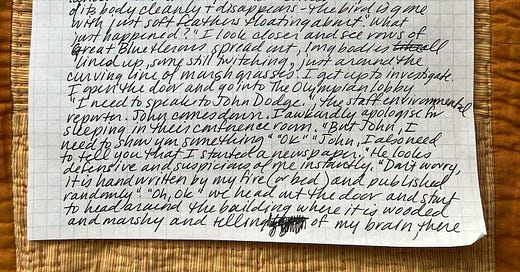 of its body cleanly + disappears - the bird is gone
with just soft feathers floating about. "What
just happened?" I look closer and see rows of
Great Blue Herons spread out, long bodies all
lined up, some still twitching, just around the
curving line of marsh grasses. I get up to investigate.
I open the door and go into the Olympian lobby
"I need to speak to John Dodge.", the staff environmental
reporter. John comes down. I awkardly apologise for
sleeping in their conference room. "But John, I
need to show you something" "OK" "John, I also need
to tell you that I started a newspaper." He looks
defensive and suspicious of me instantly. "Don't worry,
it is handwritten by my fire (or bed) and published
randomly" "Oh, ok" we head out the door and start
to head around the building where it is wooded
and marshy and telling of my brain, there